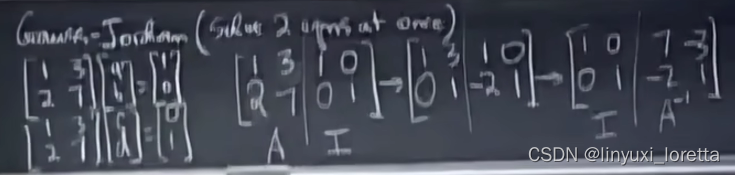 Gauss-Jordan (Solve 2 eqns at once)
[1 3; 2 7] [a; b] = [1; 0]
[1 3; 2 7] [c; d] = [0; 1]
[1 3 | 1 0; 2 7 | 0 1] → [1 3 | 1 0; 0 1 | -2 1] → [1 0 | 7 -3; 0 1 | -2 1]
A I I A⁻¹
CSDN @linyuxi_loretta